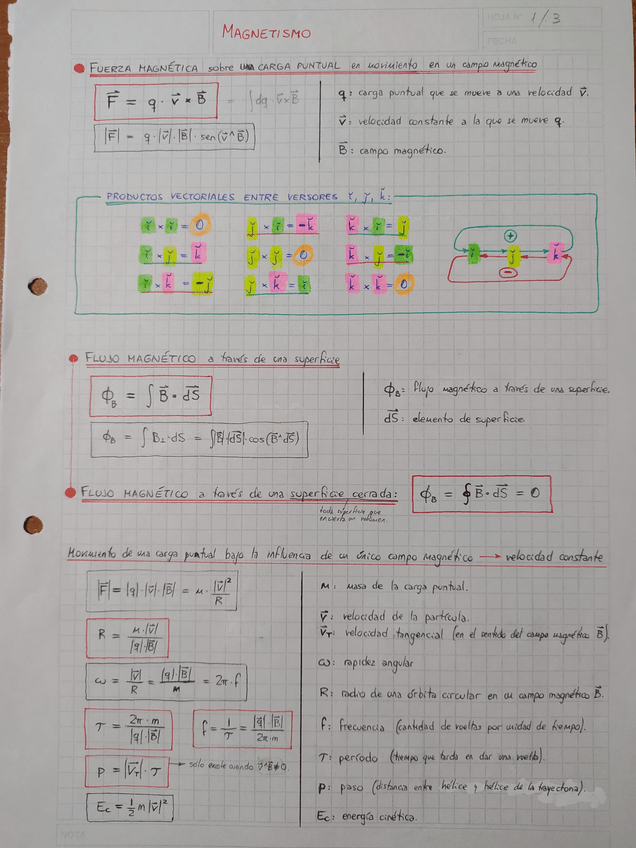 HOJA Nº 1/3
FECHA
MAGNETISMO
FUERZA MAGNÉTICA sobre una CARGA PUNTUAL en movimiento en un campo magnético
F⃗ = q · v⃗ × B⃗ = ∫dq · v⃗ × B⃗
|F⃗| = q · |v⃗| · |B⃗| · sen(v⃗^B⃗)
q: carga puntual que se mueve a una velocidad v⃗.
v⃗: velocidad constante a la que se mueve q.
B⃗: campo magnético.
PRODUCTOS VECTORIALES ENTRE VERSORES ǐ, ǰ, ǩ:
ǐ × ǐ = 0 ǰ × ǐ = -ǩ ǩ × ǐ = ǰ
ǐ × ǰ = ǩ ǰ × ǰ = 0 ǩ × ǰ = -ǐ
ǐ × ǩ = -ǰ ǰ × ǩ = ǐ ǩ × ǩ = 0
+
ǐ ǰ ǩ
-
FLUJO MAGNÉTICO a través de una superficie
ϕB = ∫ B⃗ · dS⃗
ϕB = ∫ B⊥ · dS = ∫|B⃗| · |dS⃗| · cos(B⃗^dS⃗)
ϕB: flujo magnético a través de una superficie.
dS⃗: elemento de superficie
FLUJO MAGNÉTICO a través de una superficie cerrada:
toda superficie que
encierra un volumen.
ϕB = ∮ B⃗ · dS⃗ = 0
Movimiento de una carga puntual bajo la influencia de un único campo magnético → velocidad constante
|F⃗| = |q| · |v⃗| · |B⃗| = m · |v⃗|² / R
R = m · |v⃗| / |q| · |B⃗|
ω = |v⃗| / R = |q| · |B⃗| / m = 2π · f
T = 2π · m / |q| · |B⃗|
f = 1 / T = |q| · |B⃗| / 2π · m
p = |v⃗T| · T → sólo existe cuando v⃗^B⃗ ≠ 0.
Ec = ½ m |v⃗|²
m: masa de la carga puntual.
v⃗: velocidad de la partícula.
v⃗T: velocidad tangencial (en el sentido del campo magnético B⃗).
ω: rapidez angular
R: radio de una órbita circular en un campo magnético B⃗.
f: frecuencia (cantidad de vueltas por unidad de tiempo).
T: período (tiempo que tarda en dar una vuelta).
p: paso (distancia entre hélice y hélice de la trayectoria).
Ec: energía cinética.
NOTA